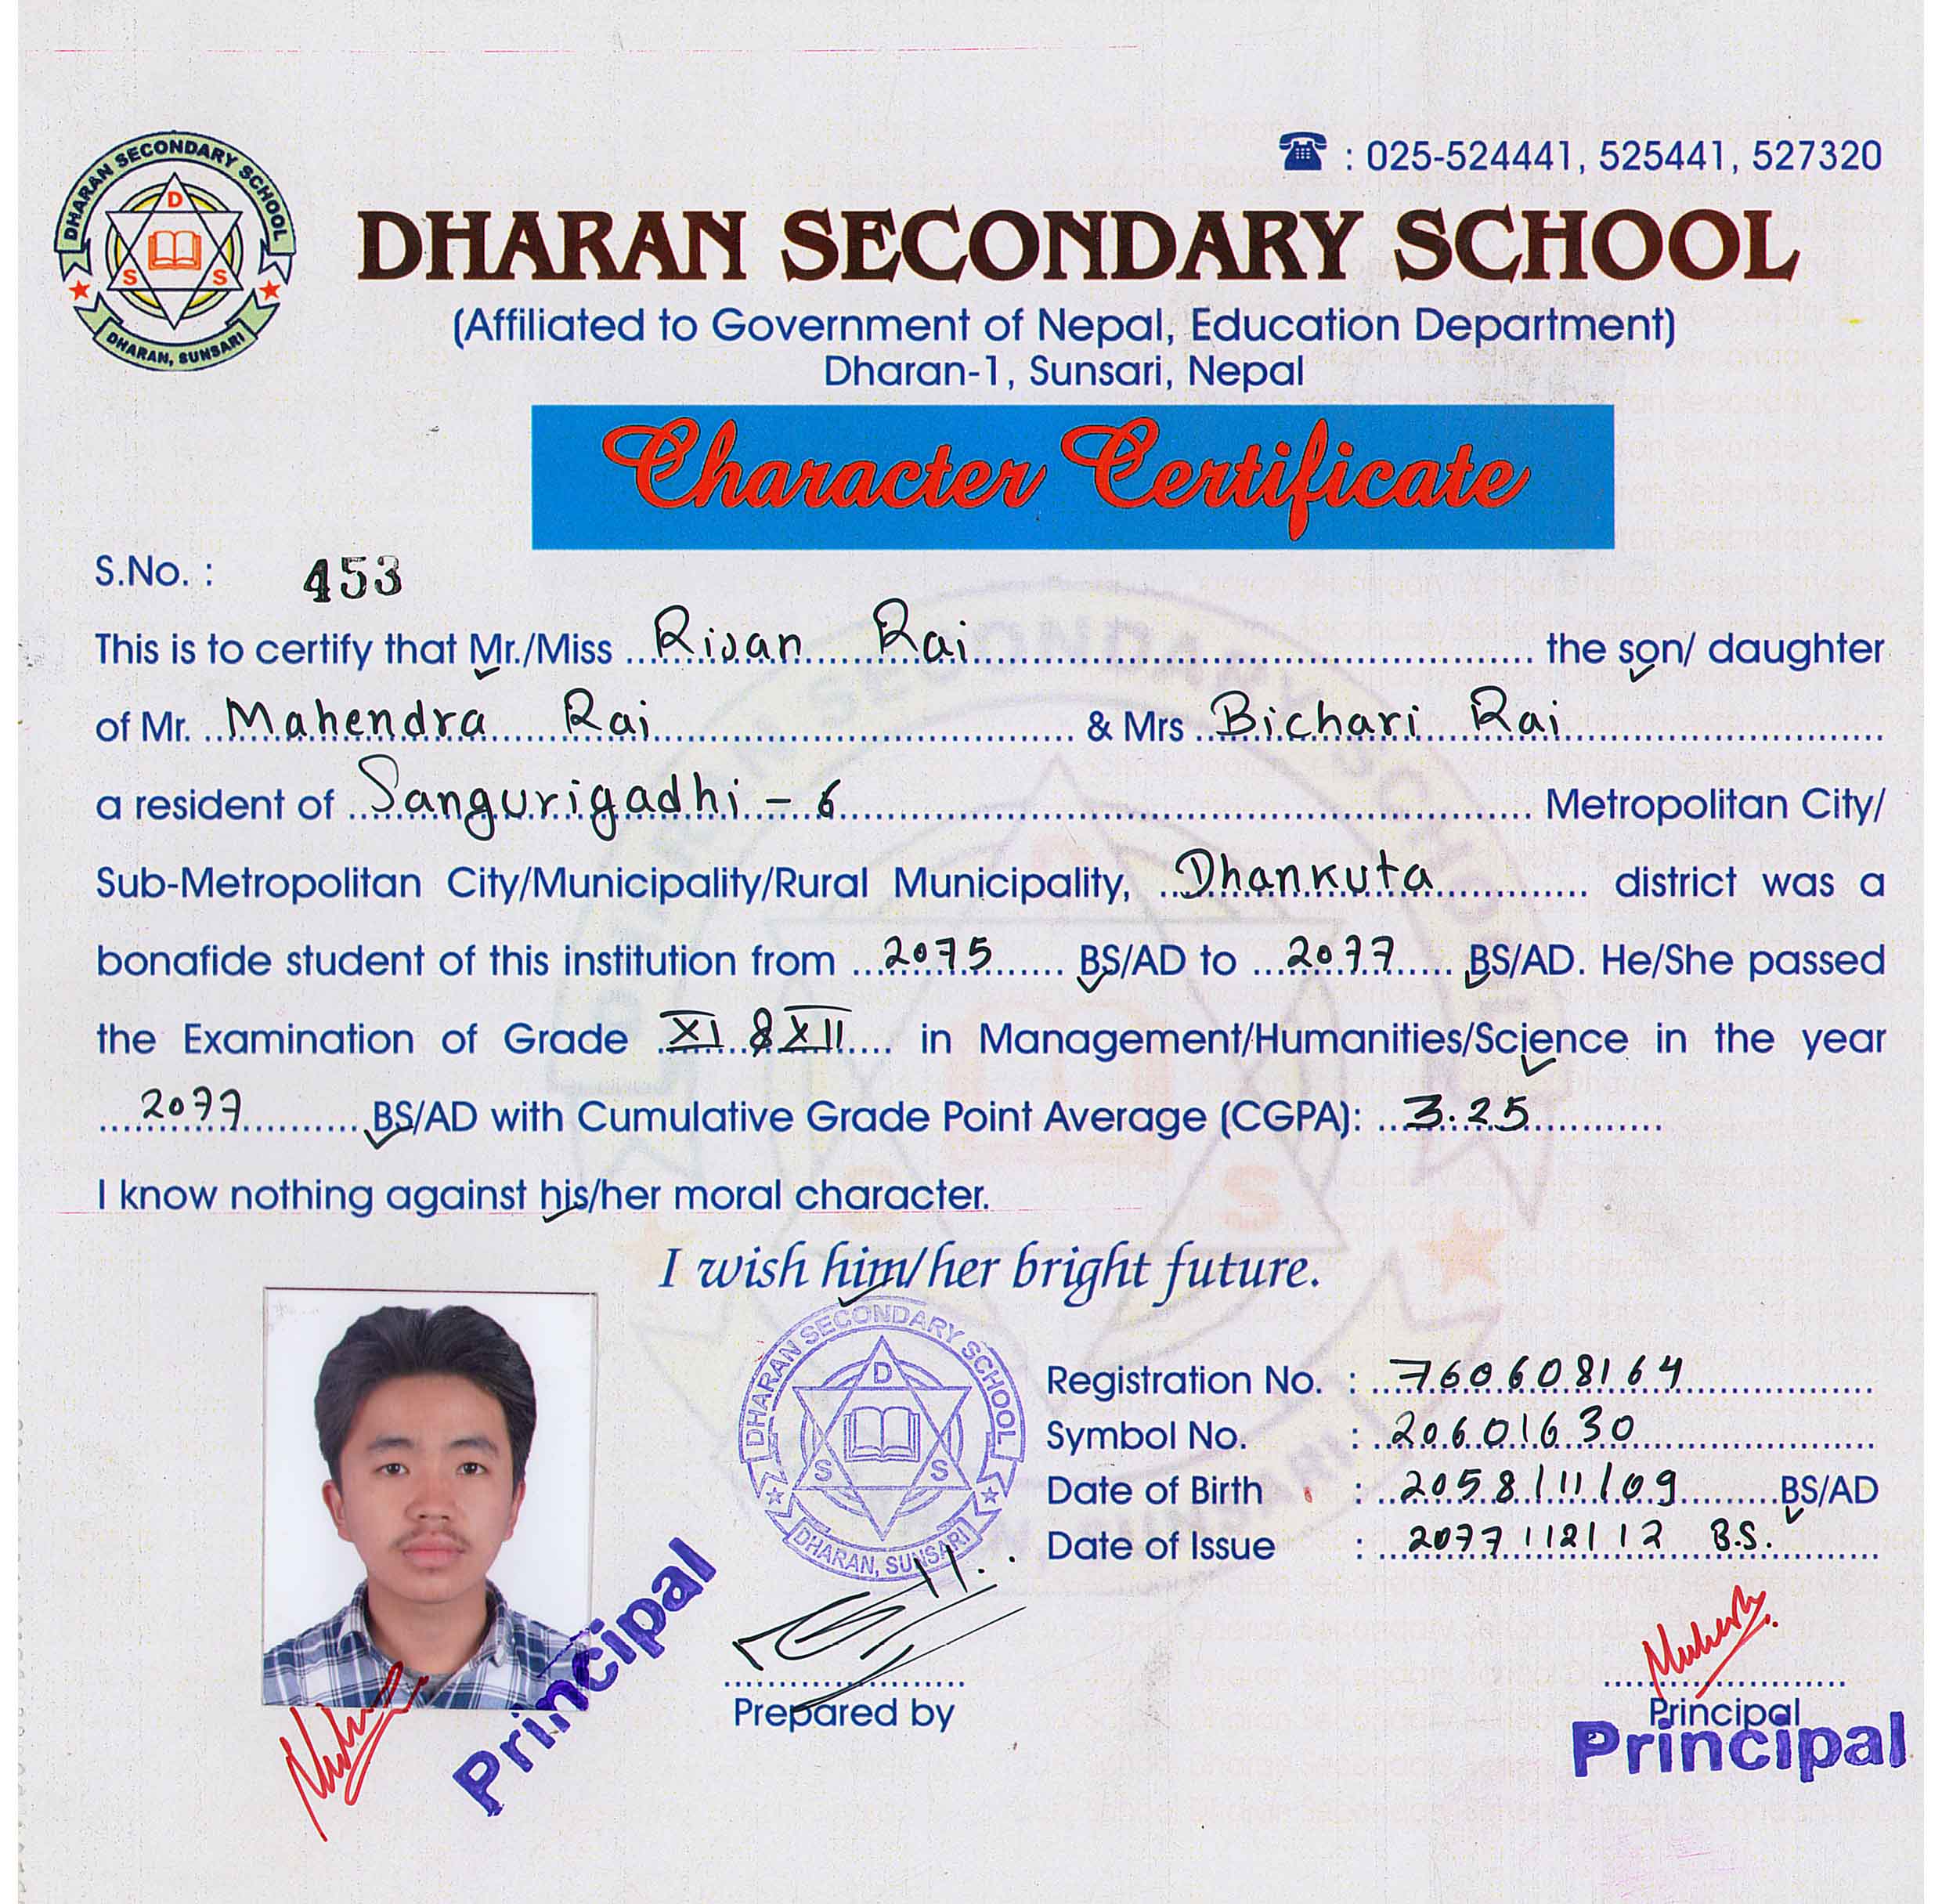 DHARAN SECONDARY SCHOOL
D
S S
DHARAN, SUNSARI
: 025-524441, 525441, 527320
DHARAN SECONDARY SCHOOL
(Affiliated to Government of Nepal, Education Department)
Dharan-1, Sunsari, Nepal
Character Certificate
S.No. : 453
This is to certify that Mr./Miss Risan Rai the son/ daughter
of Mr. Mahendra Rai & Mrs Bichari Rai
a resident of Sangurigadhi - 6 Metropolitan City/
Sub-Metropolitan City/Municipality/Rural Municipality, Dhankuta district was a
bonafide student of this institution from 2075 BS/AD to 2077 BS/AD. He/She passed
the Examination of Grade XI & XII in Management/Humanities/Science in the year
2077 BS/AD with Cumulative Grade Point Average (CGPA): 3.25
I know nothing against his/her moral character.
I wish him/her bright future.
DHARAN SECONDARY SCHOOL
D
S S
DHARAN, SUNSARI
Registration No. : 760608164
Symbol No. : 20601630
Date of Birth : 2058/11/09 BS/AD
Date of Issue : 2077/12/12 B.S.
Principal
Prepared by
Principal
Principal